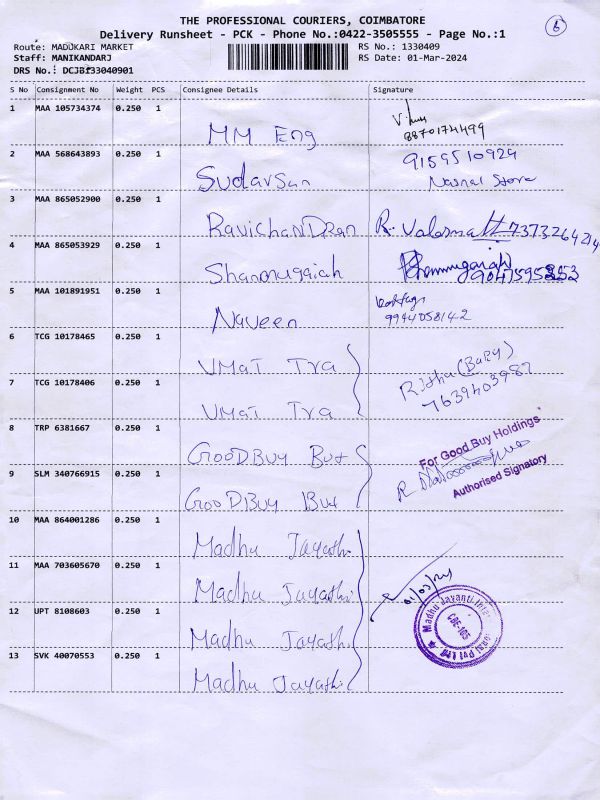 THE PROFESSIONAL COURIERS, COIMBATORE
Delivery Runsheet - PCK - Phone No.:0422-3505555 - Page No.:1
6
Route: MADUKARI MARKET
RS No.: 1330409
Staff: MANIKANDARJ
RS Date: 01-Mar-2024
DRS No.: DCJB133040901
S No Consignment No Weight PCS Consignee Details Signature
1 MAA 105734374 0.250 1
MM Eng
8870174499
2 MAA 568643893 0.250 1
Sudarsan
9159510929
Store
3 MAA 865052900 0.250 1
RavichanDran
R. 7373264214
4 MAA 865053929 0.250 1
Shanmugaiah
9047595352
5 MAA 101891951 0.250 1
Naveen
9944058142
6 TCG 10178465 0.250 1
UMaT Tra
7 TCG 10178406 0.250 1
UMaT Tra
Rithu (Baby)
7639403982
8 TRP 6381667 0.250 1
GooDBuy But
For Good Buy Holdings
9 SLM 340766915 0.250 1
GooDBuy But
R
Authorised Signatory
10 MAA 864001286 0.250 1
Madhu Jayathi
11 MAA 703605670 0.250 1
Madhu Jayathi
01/03/24
12 UPT 8108603 0.250 1
Madhu Jayathi
Madhu Jayanti International Pvt Ltd
CBE-105
13 SVK 40070553 0.250 1
Madhu Jayathi